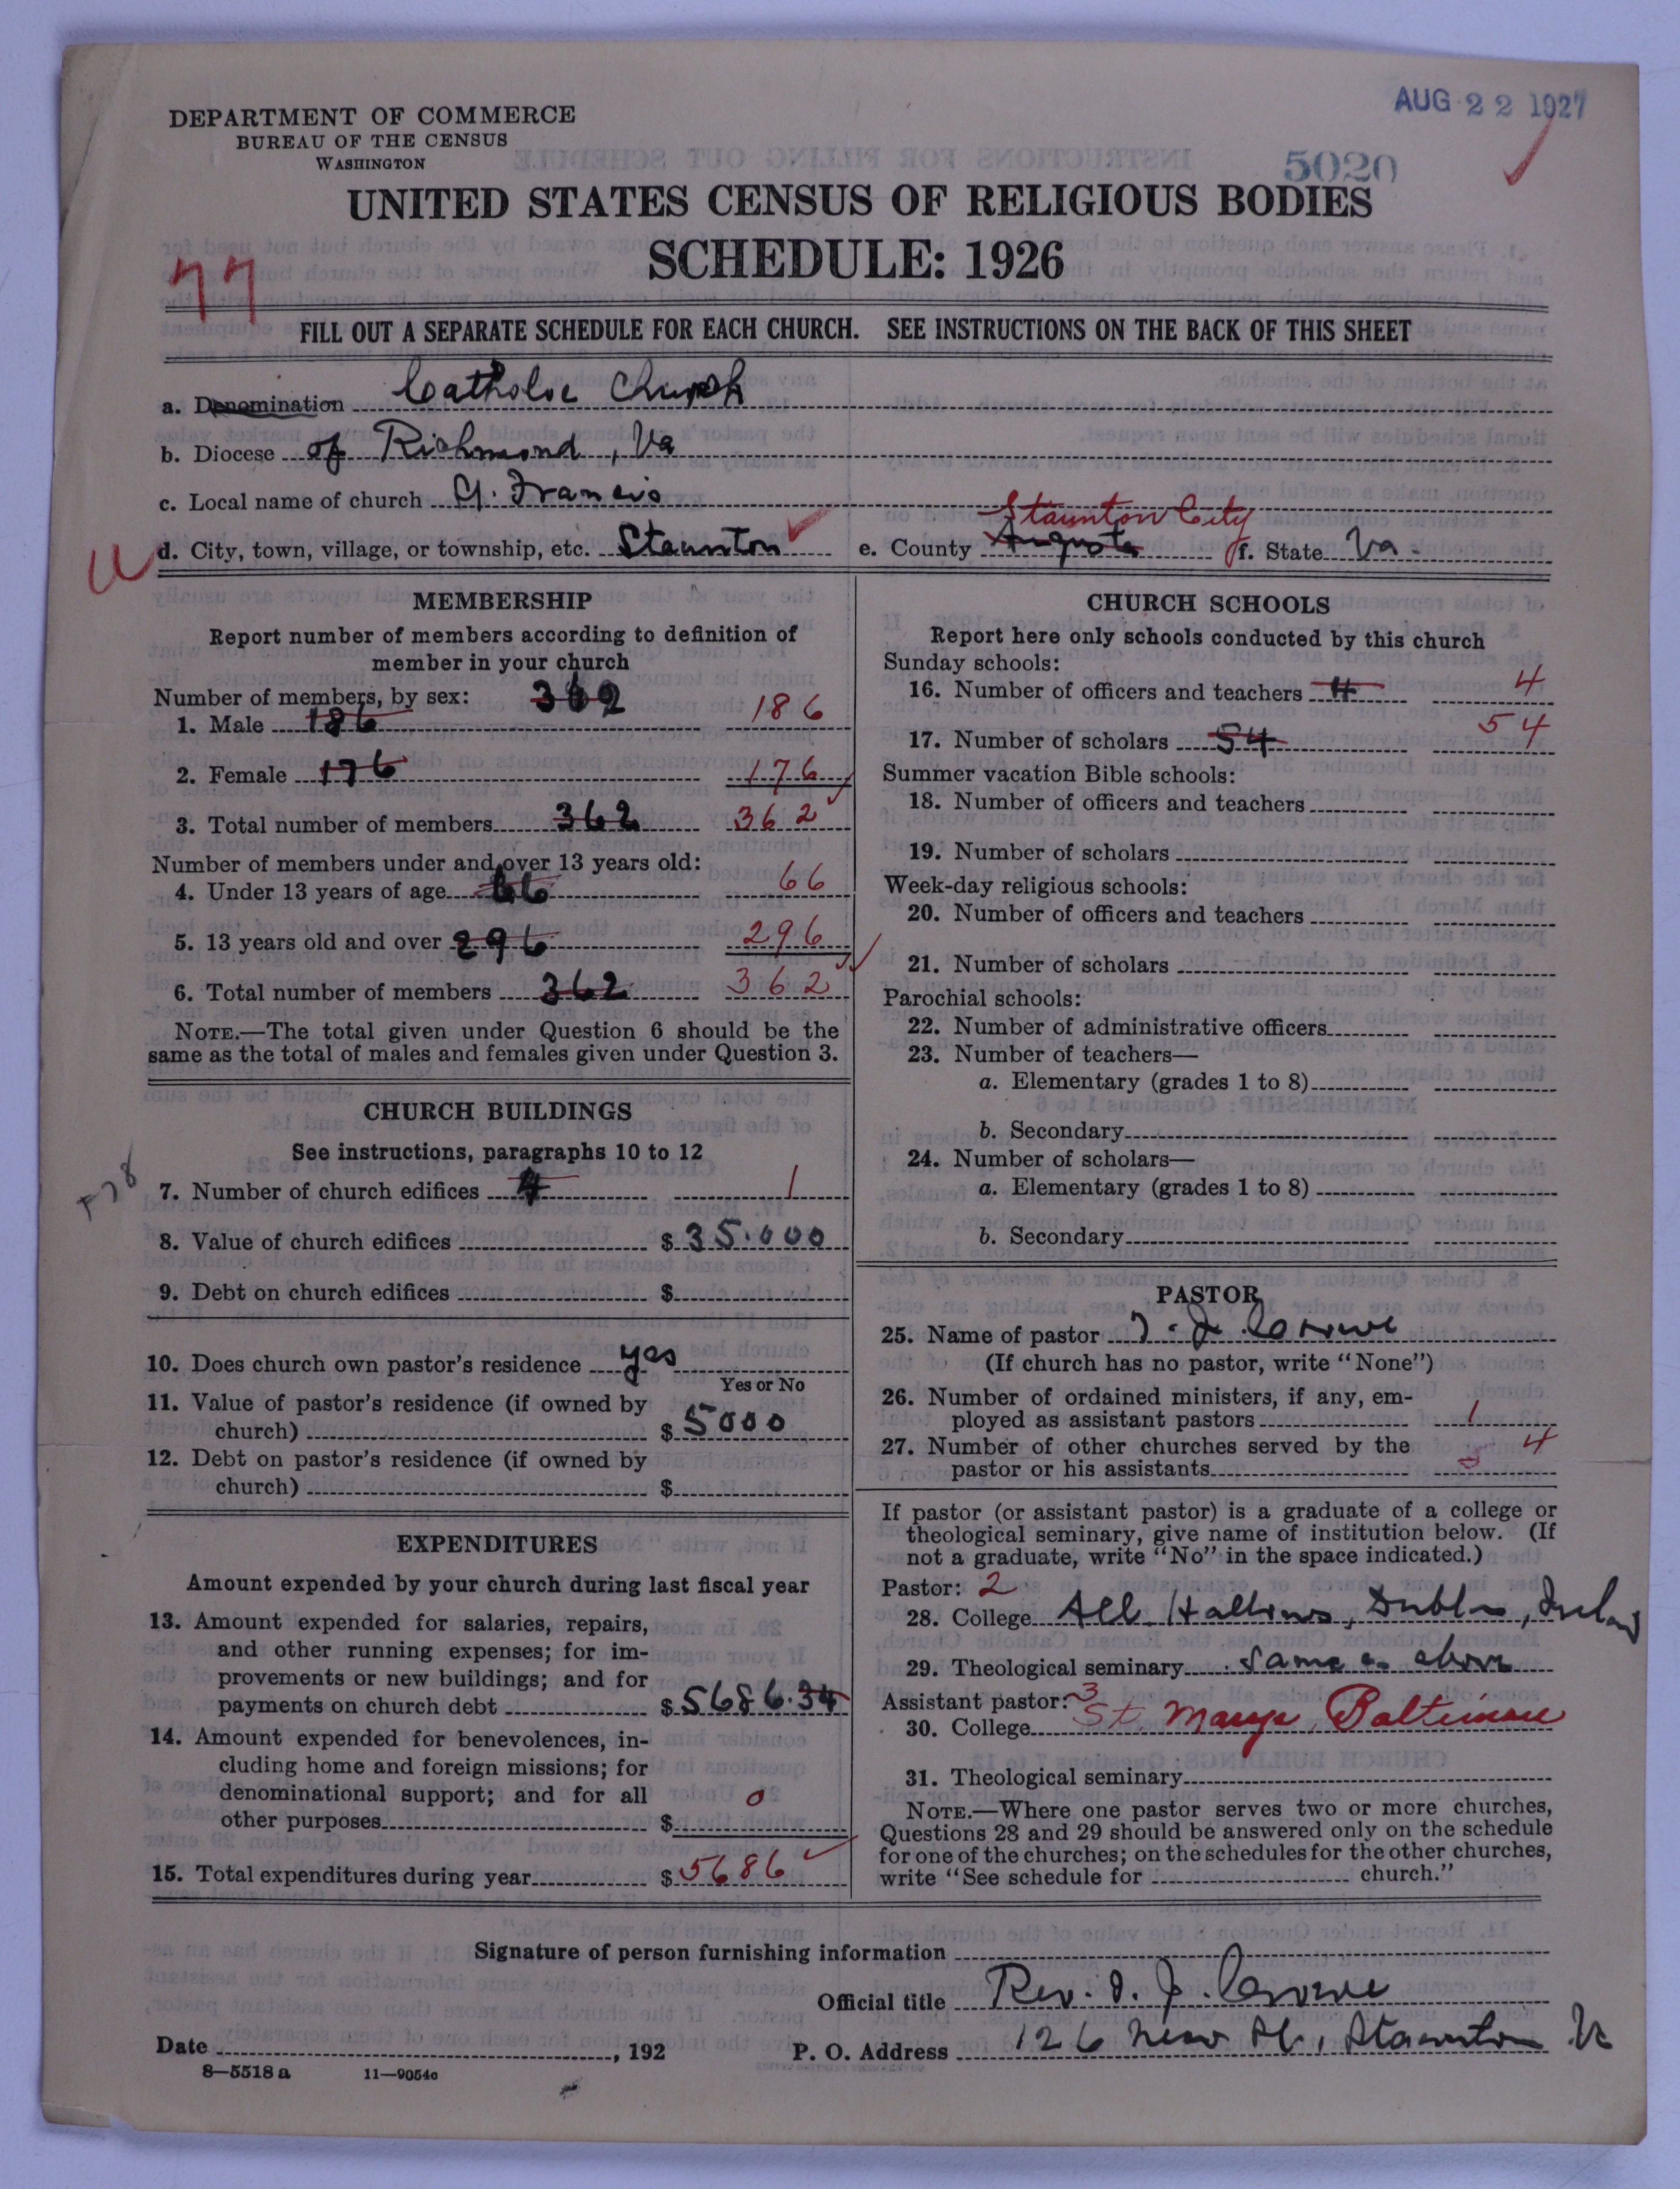 AUG 22 1927
DEPARTMENT OF COMMERCE
BUREAU OF THE CENSUS
WASHINGTON
5020
UNITED STATES CENSUS OF RELIGIOUS BODIES
SCHEDULE: 1926
77
FILL OUT A SEPARATE SCHEDULE FOR EACH CHURCH. SEE INSTRUCTIONS ON THE BACK OF THIS SHEET
a. Denomination Catholic Church
b. Diocese of Richmond, Va
c. Local name of church St. Francis
Staunton City
d. City, town, village, or township, etc. Staunton e. County Augusta f. State Va.
MEMBERSHIP
Report number of members according to definition of
member in your church
Number of members, by sex: 362
1. Male 186 186
2. Female 176 176
3. Total number of members 362 362
Number of members under and over 13 years old:
4. Under 13 years of age 66 66
5. 13 years old and over 296 296
6. Total number of members 362 362
NOTE.—The total given under Question 6 should be the
same as the total of males and females given under Question 3.
CHURCH BUILDINGS
See instructions, paragraphs 10 to 12
7. Number of church edifices 1
8. Value of church edifices $ 35.000
9. Debt on church edifices $
10. Does church own pastor's residence yes
Yes or No
11. Value of pastor's residence (if owned by
church) $ 5000
12. Debt on pastor's residence (if owned by
church) $
EXPENDITURES
Amount expended by your church during last fiscal year
13. Amount expended for salaries, repairs,
and other running expenses; for im-
provements or new buildings; and for
payments on church debt $ 5686.34
14. Amount expended for benevolences, in-
cluding home and foreign missions; for
denominational support; and for all
other purposes $ 0
15. Total expenditures during year $ 5686
CHURCH SCHOOLS
Report here only schools conducted by this church
Sunday schools:
16. Number of officers and teachers 4 4
17. Number of scholars 54 54
Summer vacation Bible schools:
18. Number of officers and teachers
19. Number of scholars
Week-day religious schools:
20. Number of officers and teachers
21. Number of scholars
Parochial schools:
22. Number of administrative officers
23. Number of teachers—
a. Elementary (grades 1 to 8)
b. Secondary
24. Number of scholars—
a. Elementary (grades 1 to 8)
b. Secondary
PASTOR
25. Name of pastor J. Crowe
(If church has no pastor, write "None")
26. Number of ordained ministers, if any, em-
ployed as assistant pastors 1
27. Number of other churches served by the
pastor or his assistants 4
If pastor (or assistant pastor) is a graduate of a college or
theological seminary, give name of institution below. (If
not a graduate, write "No" in the space indicated.)
Pastor: 2
28. College All Hallows, Dublin, Ireland
29. Theological seminary Same as above
Assistant pastor: 3
30. College St. Marys Baltimore
31. Theological seminary
NOTE.—Where one pastor serves two or more churches,
Questions 28 and 29 should be answered only on the schedule
for one of the churches; on the schedules for the other churches,
write "See schedule for church."
Signature of person furnishing information
Official title Rev. J. Crowe
Date , 192
P. O. Address 126 New St., Staunton Va
8—5518 a 11—9054c